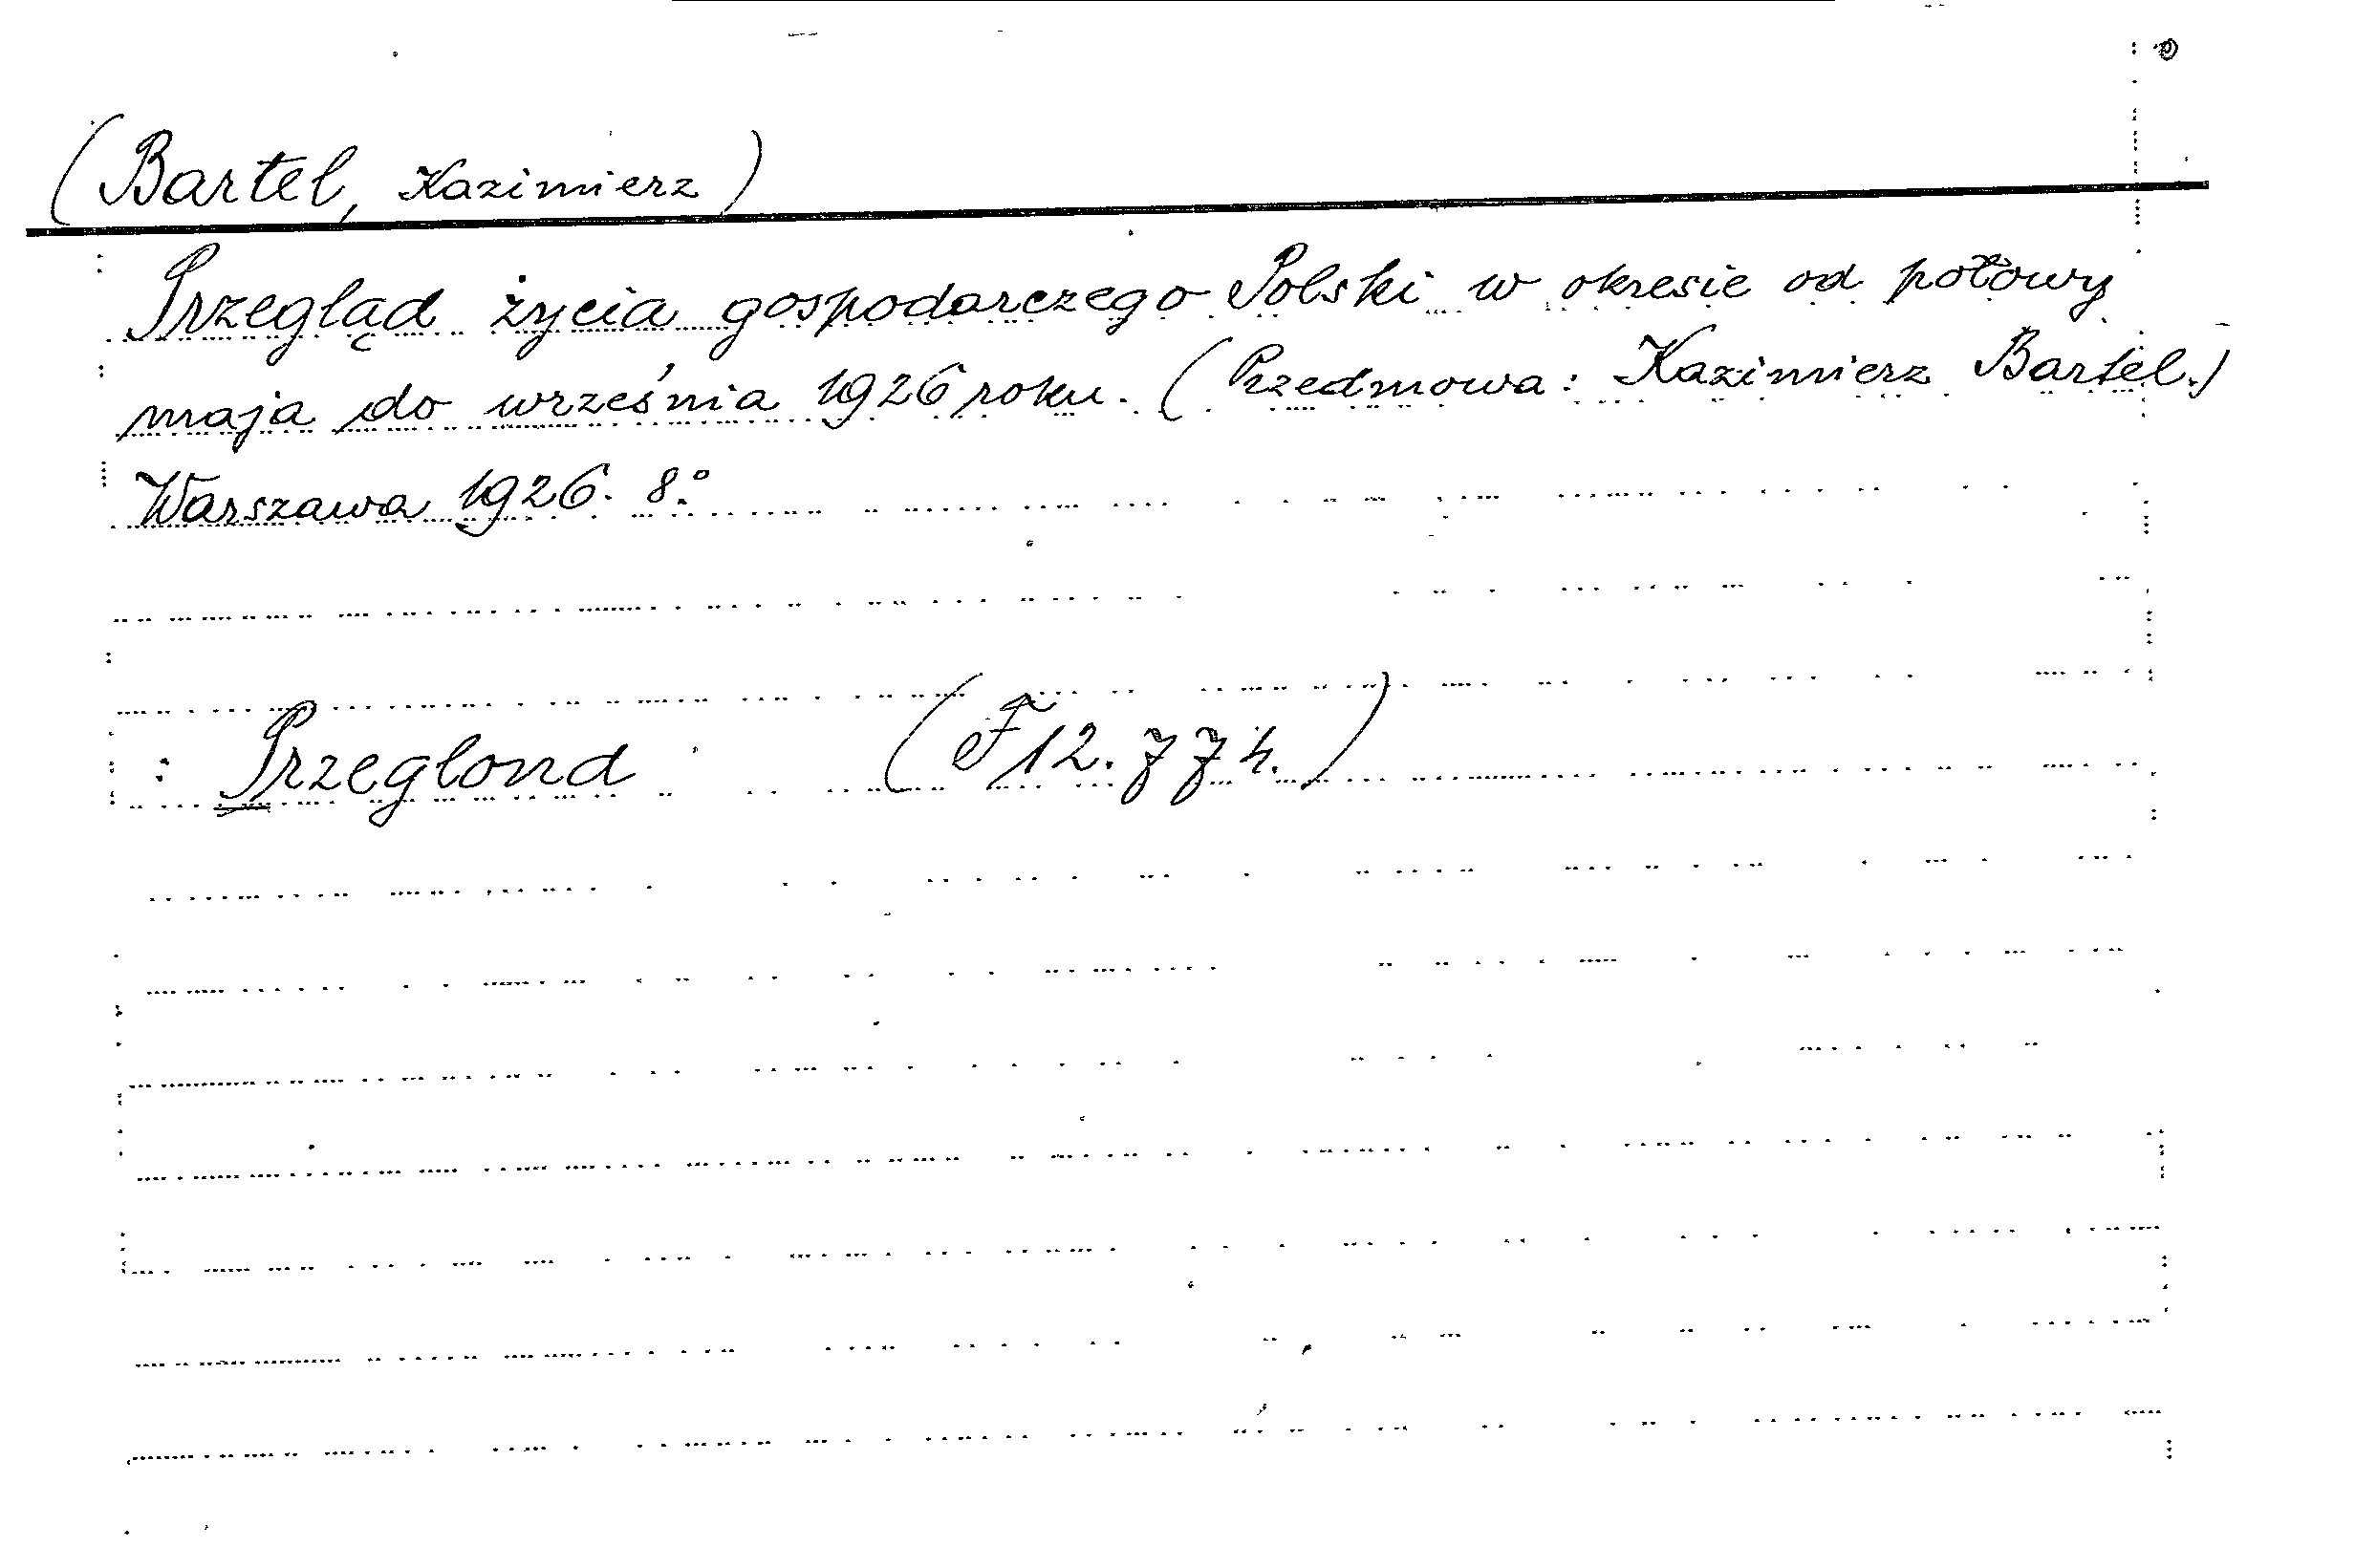 (Bartel, Kazimierz)
Przegląd życia gospodarczego Polski w okresie od połowy
maja do września 1926 roku. (Przedmowa: Kazimierz Bartel.)
Warszawa 1926. 8.°
: Przeglond (F 12.774.)